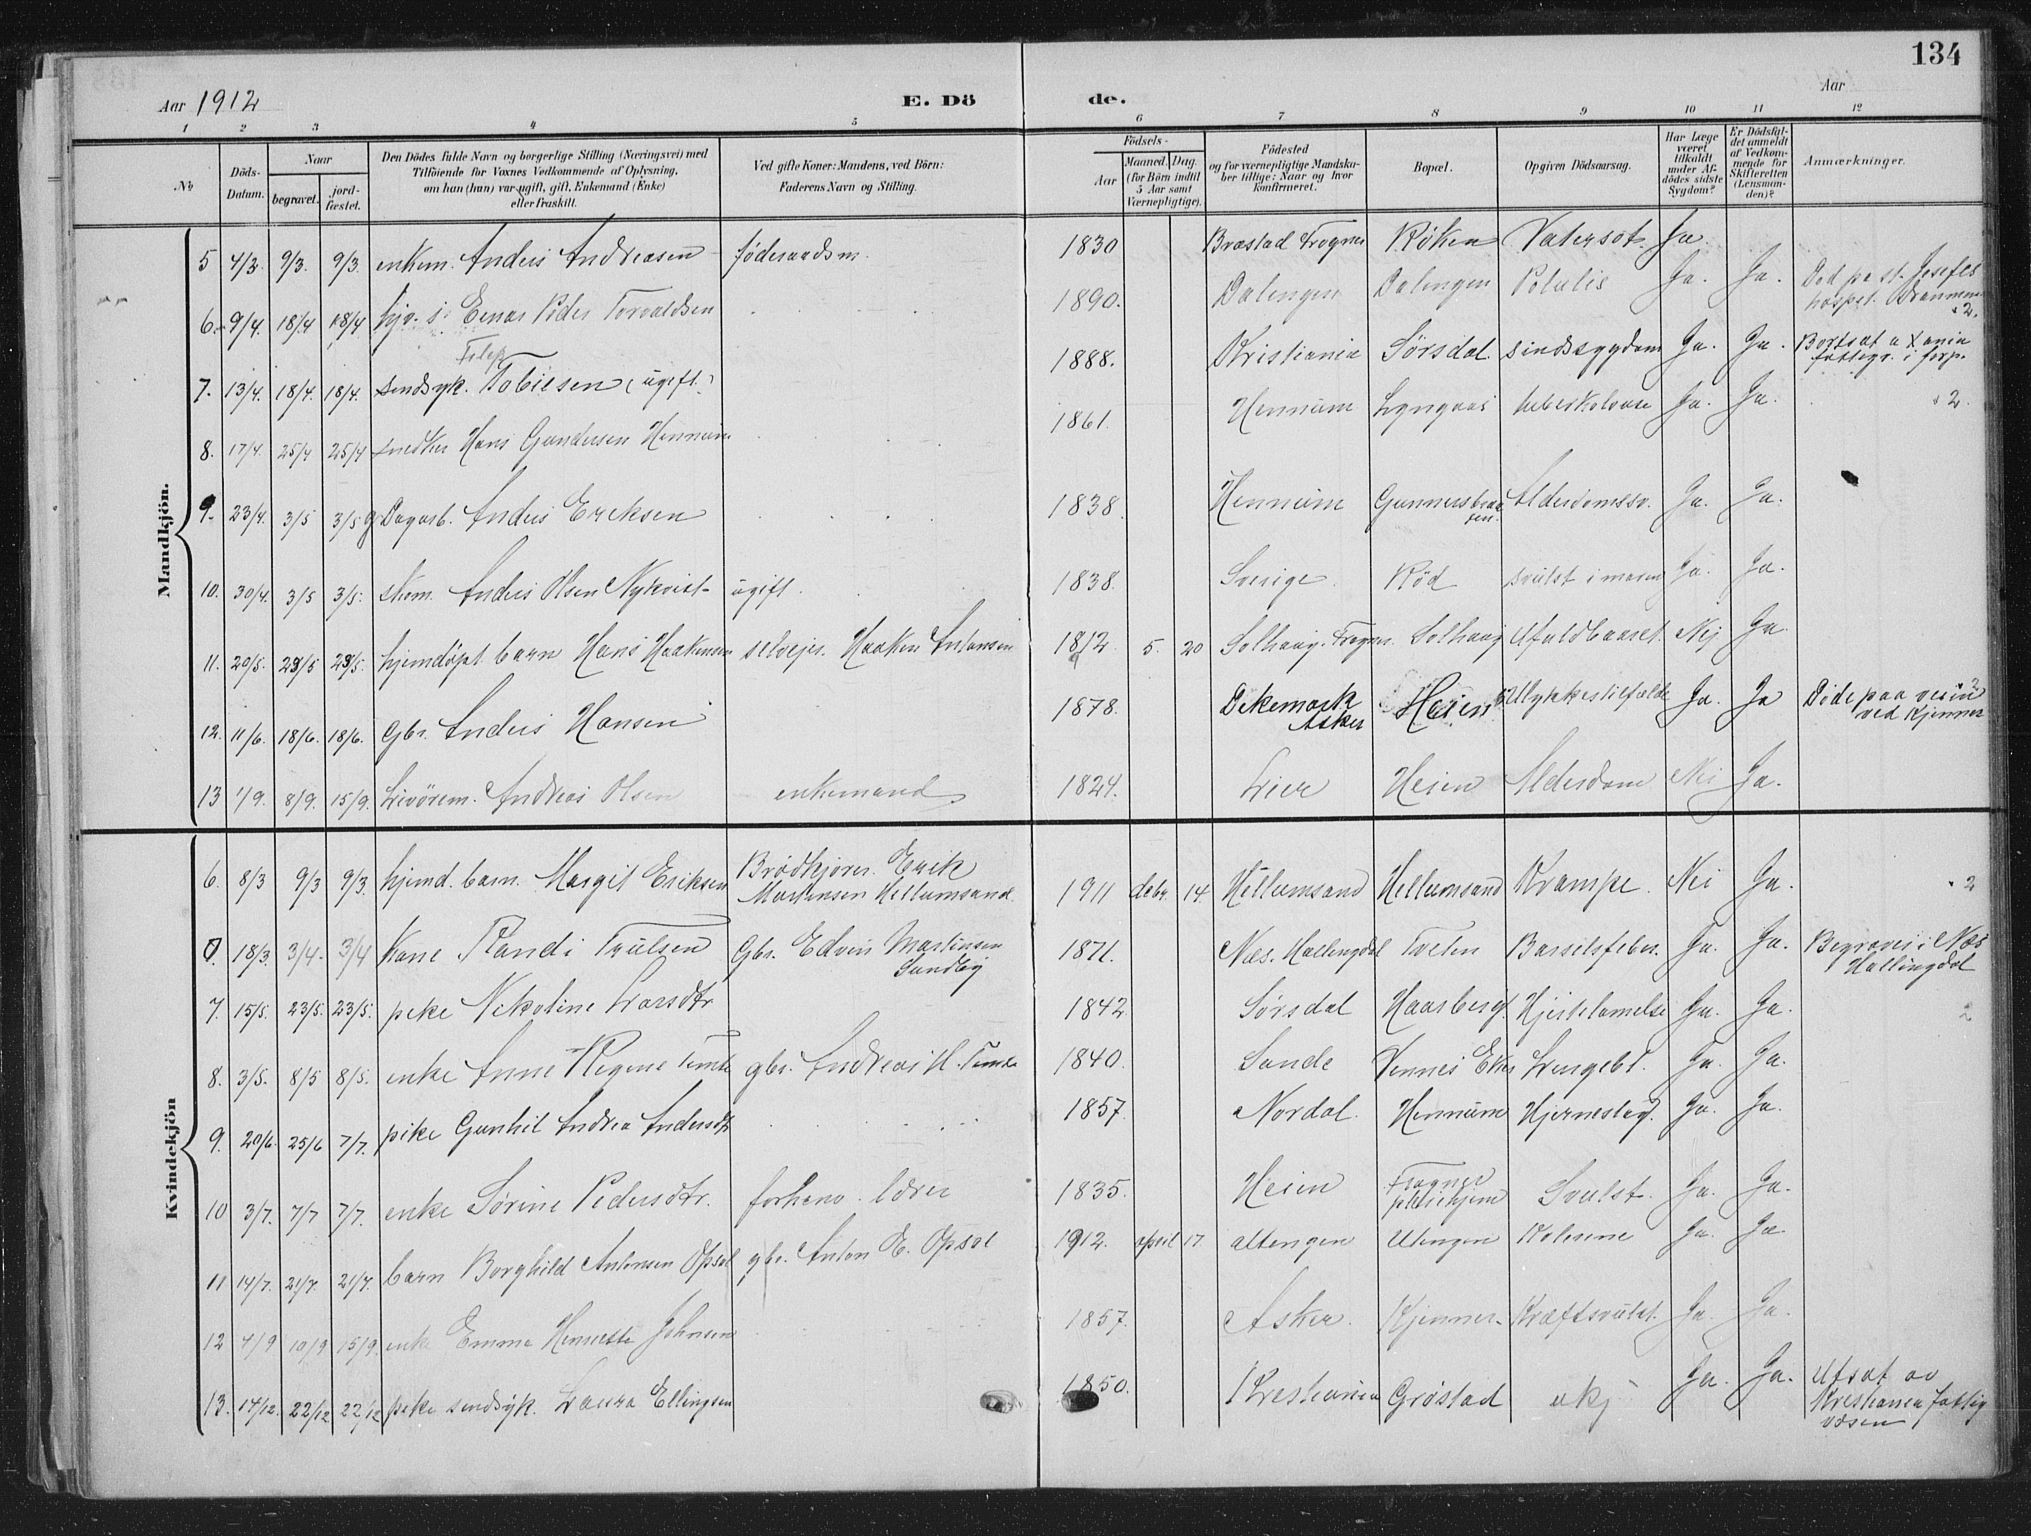 134
Aar 1912 E. Dö de. Aar
1 2 3 4 5 6 7 8 9 10 11 12
No Döds-Datum. Naar begravet. jord-fæstet. Den Dödes fulde Navn og borgerlige Stilling (Næringsvei) med Tilföiende for Voxnes Vedkommende af Oplysning, om han (hun) var ugift, gift, Enkemand (Enke) eller fraskilt. Ved gifte Koner: Mandens, ved Börn: Faderens Navn og Stilling. Födsels- Aar Maaned. Dag. (for Börn indtil 5 Aar samt Værnepligtige). Födested og for værnepligtige Mandskaber tillige: Naar og hvor konfirmeret. Bopæl. Opgiven Dödsaarsag. Har Læge været tilkaldt under Afdödes sidste Sygdom? Er Dödsfaldet anmeldt af Vedkommende for Skifteretten (Lensmanden)? Anmærkninger.
Mandkjön.
5 4/3 9/3. 9/3. enkem. Anders Andreasen föderaadsm. 1830 Bræstad Frogner Röken Vatersot. Ja.
6. 9/4. 18/4 18/4 Einar Peder Torvaldsen 1890. Dalengen Dalengen Ja. Ja. Död paa st. Josefs hospit. Drammen
7. 13/4. 18/4. 18/4. sindsyk. Tobiesen (ugift) 1888. Kristiania Sörsdal. sindssygdom Ja. Ja. Bortsat a Xania fattigv. i forp.
8. 17/4. 25/4 25/4 snedker Hans Gundersen Hennum 1861. Hennum Lyngaas tuberkolose Ja. Ja. 2.
9. 23/4. 3/5 3/5 Dagarb. Anders Eriksen 1838. Hennum Gunnersbraaten. Alderdomssv. Ja. Ja.
10. 30/4. 3/5 3/5. Anders Olsen Nykvist ugift. 1838. Sverige. Röd svulst i maven Ja. Ja.
11. 20/5. 29/5 29/5. hjemdöpt barn Hans Haakensen selvejer. Haaken Antonsen 1812 5. 20 Solhaug. Frogner. Solhaug Ufuldbaaret. Nej Ja.
12. 11/6. 18/6. 18/6. Gbr. Anders Hansen 1878. Dikemark Asker Heien Ulykkestilfælde Ja. Ja Döde paa veien ved Kjenner
13 1/9. 8/9. 15/9. Livörem. Andreas Olsen enkemand 1824. Lier Heien Alderdom Nei Ja.
Kvindekjön
6. 8/3 9/3 9/3. hjemd. barn. Margit Eriksen Brödkjörer. Erik Martinsen Hellumsand. 1911 debr. 14. Hellumsand Hellumsand Krampe. Nei Ja. 2
18/3. 3/4. 3/4 Kone Randi Trulsen Gbr. Edvin Martinsen Sundby 1871. Næs. Hallingdal Tveten Barselsfeber. Ja. Ja. Begraves i Næs Hallingdal
7. 15/5. 23/5. 23/5. pike Nikoline Larsdtr 1842. Sörsdal Haasberg. Hjertelamelse Ja. Ja. 2
8. 3/5. 8/5 8/5. enke Anne Regine Temte gbr. Andreas H. Temte 1840. Sande Vennes Eker Lungebt. Ja. Ja.
9. 20/6. 25/6 7/7. pike Gunhil Andrea Andersdtr 1857. Nordal. Hennum Hjerneslag. Ja. Ja.
10 3/7. 7/7 7/7. enke Sörine Pedersdtr. forhenv. lærer 1835. Heien Frogner pleiehjem Svulst. Ja. Ja.
11 14/7. 21/7. 21/7. barn Borghild Antonsen Opsal gbr. Anton E. Opsal 1912. april 17. Utengen Kolerine Ja. Ja
12 4/9 10/9 15/9. enke Emma Henriette Johnsen 1857. Asker. Kjenner. Kræftsvulst. Ja. Ja.
13. 17/12. 22/12 22/12 pike sindsyk. Laura Ellingsen 1850. Kristiania Gröstad ukj Ja. Ja. Utsat av Kristiania fattigvæsen